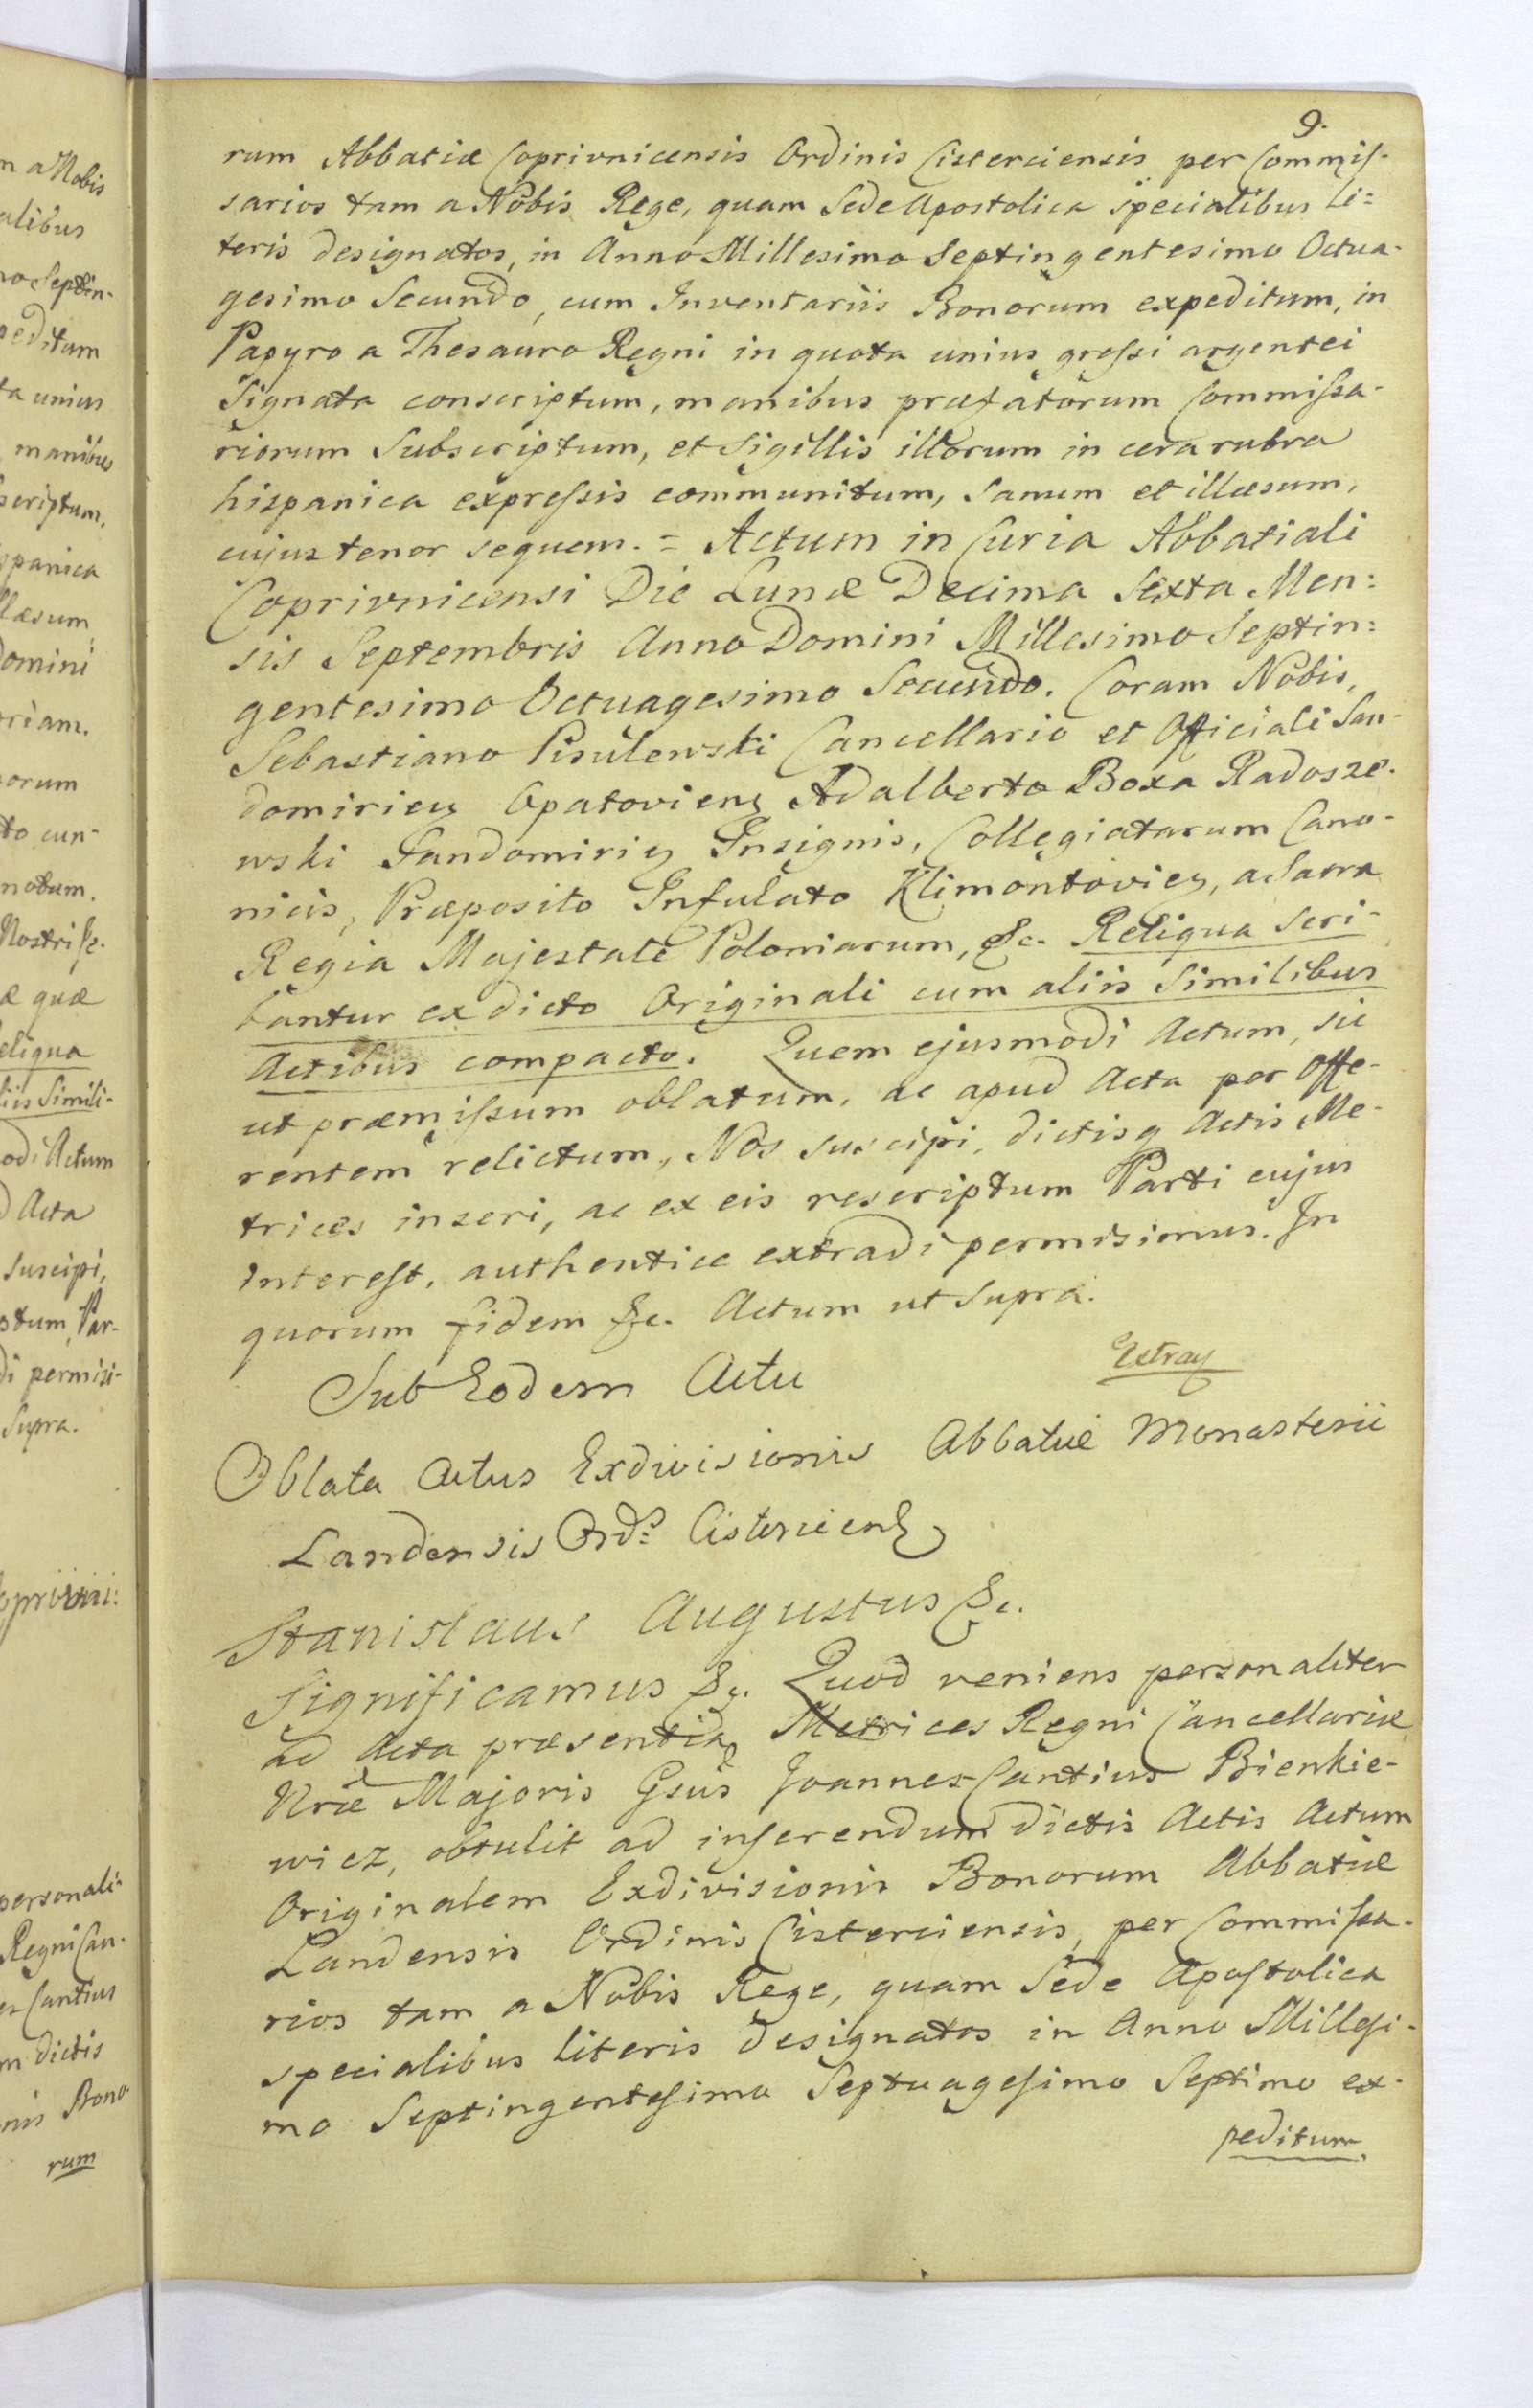 9.
rum Abbatiæ Coprivnicensis Ordinis Cisterciensis per Commis-
sarios tam a Nobis Rege, quam Sede Apostolica specialibus Li=
teris designatos, in Anno Millesimo Septingentesimo Octua-
gesimo Secundo, cum Inventariis Bonorum expeditum, in
Papyro a Thesauro Regni in quota unius grossi argentei
Signata conscriptum, manibus præfatorum Commissa-
riorum Subscriptum, et Sigillis illorum in cera rubra
hispanica expressis communitum, Sanum et illæsum,
cujus tenor sequem. = Actum in Curia Abbatiali
Coprivnicensi Die Lunæ Decima Sexta Men=
sis Septembris Anno Domini Millesimo Septin=
gentesimo Octuagesimo Secundo. Coram Nobis,
Sebastiano Pisulewski Cancellario et Officiali San-
domirien Opatovien Adalberto Boxa Radosze-
wski Sandomirien Insignis, Collegiatarum Cano-
nicis, Præposito Infulato Klimontovien, a Sacra
Regia Majestate Poloniarum, &c. Reliqua Scri-
bantur ex dicto Originali cum aliis Similibus
Actibus compacto. Quem ejusmodi Actum, sic
ut præmissum oblatum, ac apud Acta per Offe-
rentem relictum, Nos suscipi, dictisq Actis Me-
trices inseri, ac ex eis rescriptum Parti cujus
interest, authentice extradi permisimus. In
quorum fidem &c. Actum ut Supra.
Extray
Sub Eodem Actu
Oblata Actus Exdivisionis Abbatiæ Monasterii
Landensis Ord̃s Cistercien
Stanislaus Augustus &c.
Significamus &c. Quod veniens personaliter
ad Acta præsentia Metrices Regni Cancellariæ
Nræ Majoris Gsus Joannes Cantius Bienkie-
wicz, obtulit ad inserendum dictis Actis Actum
Originalem Exdivisionis Bonorum Abbatiæ
Landensis Ordinis Cisterciensis, per Commissa-
rios tam a Nobis Rege, quam Sede Apostolica
specialibus literis designatos in Anno Millesi-
mo Septingentesimo Septuagesimo Septimo ex-
peditum
m a Nobis
alibus
no Septin-
peditum
ta unius
manibus
scriptum,
spanica
llæsum
Domini
oriam.
orum
to cun-
notum.
Nostri se-
æ quæ
eliqua
liis Simili-
odi Actum
d Acta
Suscipi,
ptum Par-
di permisi-
Supra.
personali-
Regni Can-
es Cantius
m dictis
nis Bono-
rum